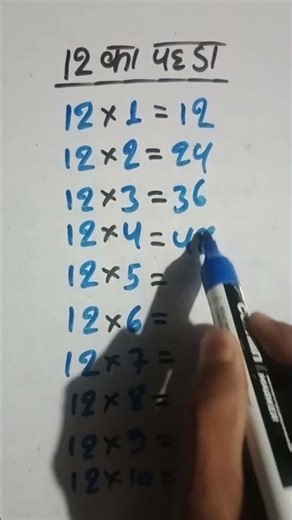 12 का पहाडा
12 × 1 = 12
12 × 2 = 24
12 × 3 = 36
12 × 4 = 4
12 × 5 =
12 × 6 =
12 × 7 =
12 × 8 =
12 × 9 =
12 × 10 =